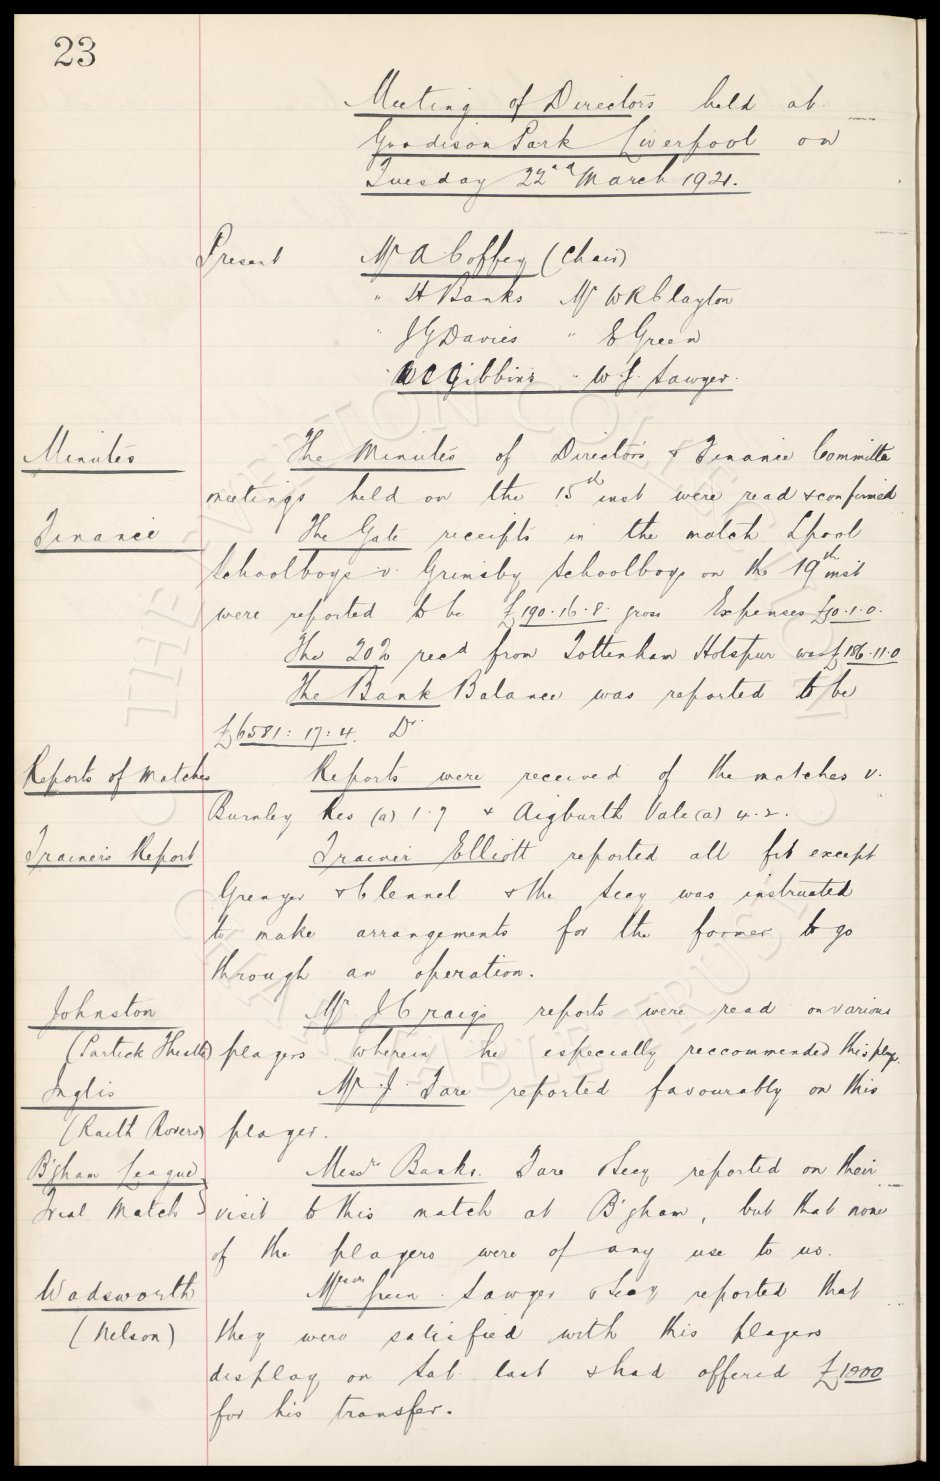 23
Meeting of Directors held at
Goodison Park Liverpool on
Tuesday 22nd March 1921.
Present Mr A Coffey (Chair)
" H Banks Mr W R Clayton
" J G Davies " E Green
" W C Gibbins " W. J. Sawyer.
Minutes The Minutes of Directors & Finance Committe
meetings held on the 15th inst were read & confirmed
Finance The Gate receipts in the match Lpool
Schoolboys v. Grimsby Schoolboys on the 19th inst
were reported to be £190.16.8. gross Expenses £0.1.0.
The 20% recd from Tottenham Hotspur was £186.11.0
The Bank Balance was reported to be
£6581:17:4. Dr
Reports of Matches Reports were received of the matches v.
Burnley Res (a) 1.7 & Aigburth Vale (a) 4.2.
Trainers Report Trainer Elliott reported all fit except
Grenyer & Clennel & the Secy was instructed
to make arrangements for the former to go
through an operation.
Johnston Mr J Craigs reports were read on various
(Partick Thistle) players wherein he especially reccommended this playr.
Inglis Mr. J. Fare reported favourably on this
(Raith Rovers) player.
B'gham League Messrs Banks. Fare & Secy reported on their
Trial Match visit to this match at B'gham, but that none
of the players were of any use to us.
Wadsworth Messrs Green. Sawyer & Secy reported that
(Nelson) they were satisfied with this players
display on Sat. last & had offered £1800
for his transfer.
THE EVERTON COLLECTION
CHARITABLE TRUST